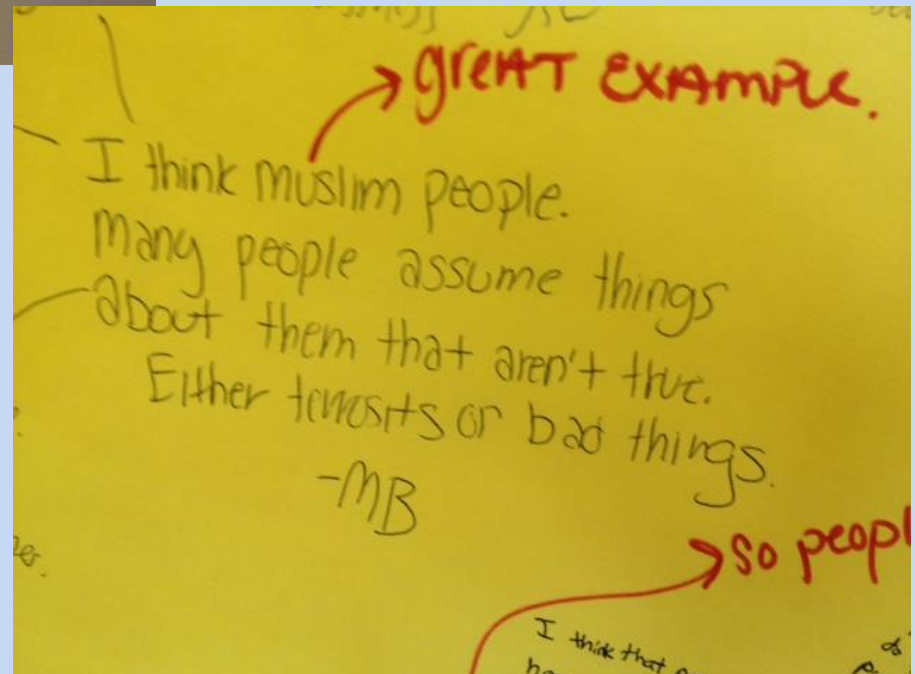 great EXAMPLE.
I think muslim people.
Many people assume things
about them that aren't true.
Either terrosits or bad things.
-MB
so peopl
I think that